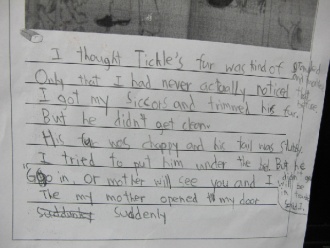 I thought Tickle's fur was kind of
Only that I had never actually noticed
I got my Sicsors and trimmed his fur.
But he didn't get clean.
His fur was choppy and his tail was
I tried to put him under the bed. But he
"Go in, Or mother will see you and I
The my mother opened my door
suddenly